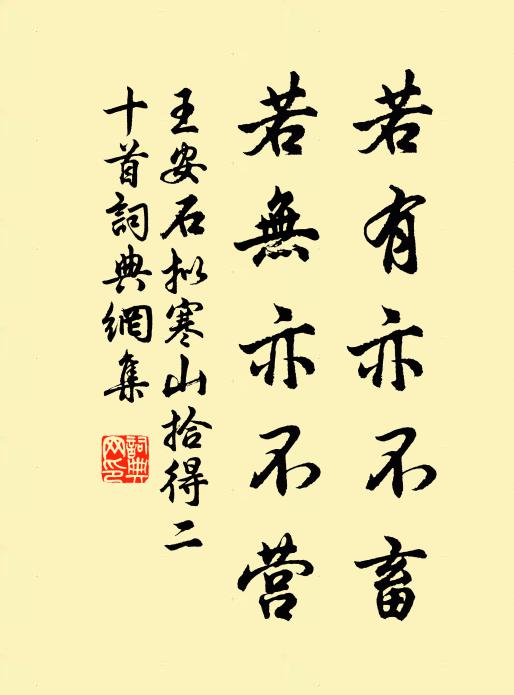 若有亦不畜
若無亦不营
王安石拟寒山拾得二
十首詞典網集
詞典
网印